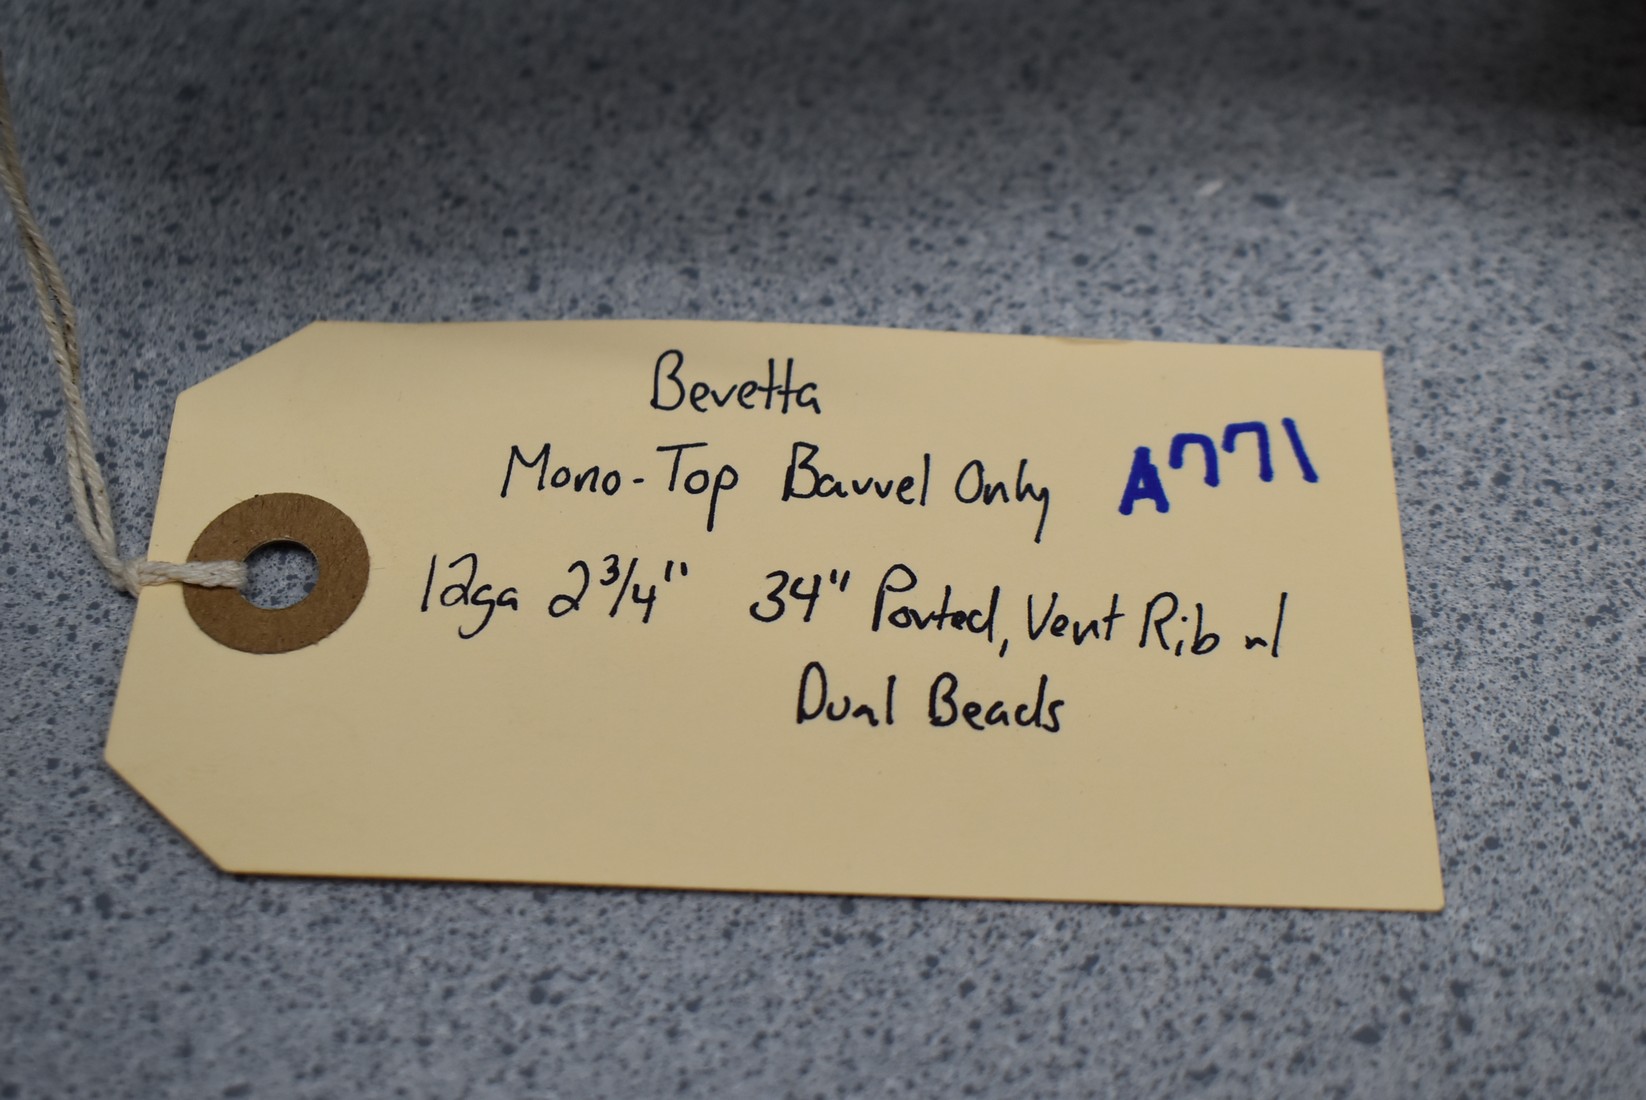 Beretta
Mono-Top Barrel Only A771
12ga 2 3/4" 34" Ported, Vent Rib w/
Dual Beads